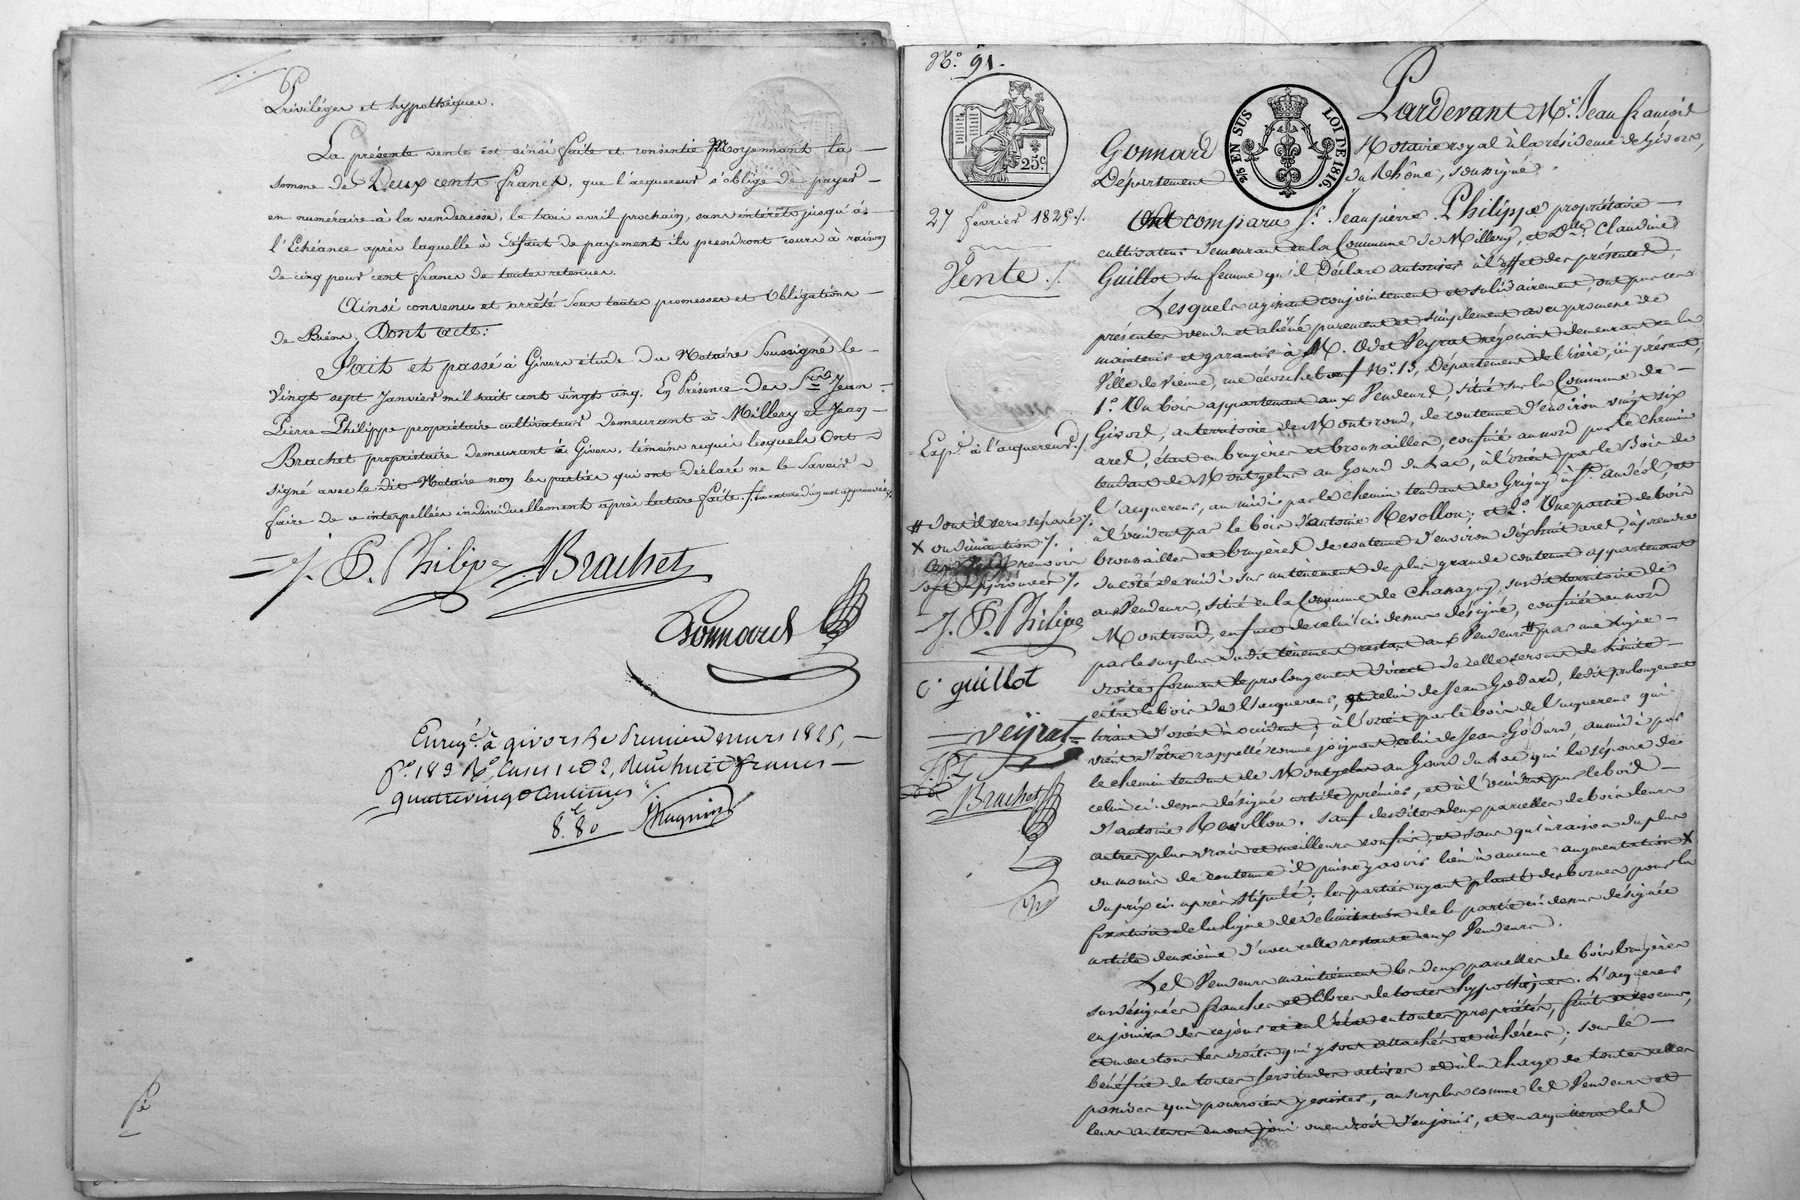 Privilèges et hypothèques.
La présente vente est ainsi faite et consentie Moyennant la
somme de Deux cents francs, que l'acquereur s'oblige de payer
en numéraire à la venderesse, le trois avril prochain, sans intérêts jusqu'à
l'Echéance après laquelle à défaut de payement ils prendront cours à raison
de cinq pour cent francs de toutes retenues.
Ainsi convenu et arrêté sous toutes promesses et Obligations
de Biens. Dont acte:
Fait et passé à Givors étude du Notaire Soussigné le
vingt sept Janvier mil huit cent vingt cinq. En Présence des Srs Jean
Pierre Philippe propriétaire cultivateur demeurant à Millery et Jean
Brachet propriétaire demeurant à Givors, témoins requis lesquels ont
signé avec le dit Notaire non les parties qui ont déclaré ne le savoir
faire de ce interpellées individuellement après lecture faite.
J. P. Philipe Brachet
Gonnard
Enregé. à givors le Premier mars 1825,
fo. 189 Ro. Cases 1 et 2, Reçu huit francs
quatrevingt Centimes
8f. 80
No. 91.
25c.
25 EN SUS LOI DE 1816.
Pardevant Me. Jean François
Gonnard Notaire royal à la résidence de Givors,
Département du Rhône, soussigné.
27 février 1825
Ont comparu Sr. Jean pierre Philippe propriétaire
cultivateur demeurant en la Commune de Millery, et Dlle. Claudine
Vente
Guillot sa femme qu'il Déclare autoriser à l'effet des présentes,
Lesquels agissant conjointement et solidairement, ont par ces
présentes vendu et aliéné purement et simplement avec promesse de
maintenir et garantir à M. Odet Veyrat négociant demeurant en la
Ville de Vienne, No. 15, Département de l'Isère, ici présent,
1°. Un bois appartenant aux Vendeurs, situé sur la Commune de
Givors, au territoire de Montrond, de contenue d'environ vingt six
Expé. à l'acquereur
ares, étant en bruyères et broussailles, confiné au nord par le chemin
tendant de Montgelas au Gourd du Lac, à l'orient par le Bois de
l'acquereur, au midi par le chemin tendant de Grigny à St. andéol, et
# dont il sera séparé
à l'occident par le bois d'antoine Revollon; et 2°. Une partie de bois
X ou diminution
broussailles et bruyères de contenue d'environ dixhuit ares, à prendre
renvoi
du côté de midi sur un tènement de plus grande contenue appartenant
approuvés
aux Vendeurs, situé en la Commune de Chassagny, susdit territoire de
J. P. Philipe
Montrond, en face de celui ci dessus désigné, confinée au nord
par le surplus du dit tènement restant aux Vendeurs # par une ligne
C. guillot
droite formant le prolongement direct de celle servant de limite
entre le bois de l'acquereur, et celui de Jean Godard, ledit prolongement
veÿrat
tirant d'orient à occident; à l'orient par le bois de l'acquereur qui
vient d'être rappellé comme joignant celui de Jean Godard, au midi par
le chemin tendant de Montgelas au Gourd du Lac qui le sépare de
Brachet
celui ci dessus désigné article premier, et à l'occident par le bois
d'antoine Revollon. Sauf desdites deux parcelles de bois leurs
autres plus vrais et meilleurs confins, et sans qu'à raison du plus
ou moins de contenue il puisse y avoir lieu à aucune augmentation X
du prix ci après stipulé; les parties ayant planté des bornes pour la
fixation de la ligne de délimitation de la partie ci dessus désignée
article deuxième d'avec celle restante aux Vendeurs.
Les Vendeurs maintiennent les deux parcelles de bois bruyères
susdésignées franches et libres de toutes hypothèques. L'acquereur
en jouira dès ce jour et en l'état en toute propriété, fruits et revenus,
et avec tous les droits qui y sont attachés et inhérens; sous le
bénéfice de toutes servitudes actives et à la charge de toutes celles
passives qui pourroient y exister, au surplus comme les Vendeurs et
leurs auteurs en ont joui ou eu droit d'en jouir, et en acquittera les